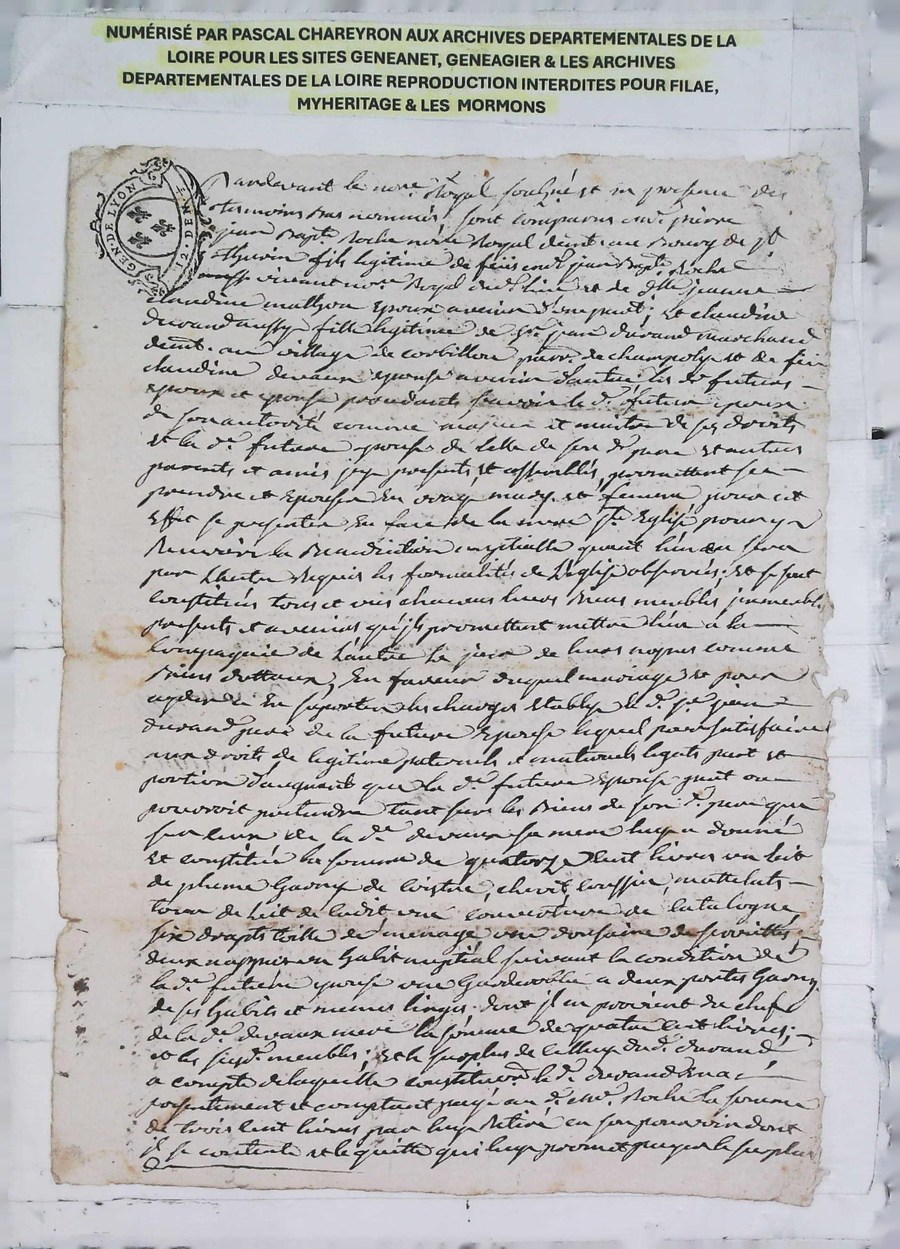 NUMÉRISÉ PAR PASCAL CHAREYRON AUX ARCHIVES DEPARTEMENTALES DE LA
LOIRE POUR LES SITES GENEANET, GENEAGIER & LES ARCHIVES
DEPARTEMENTALES DE LA LOIRE REPRODUCTION INTERDITES POUR FILAE,
MYHERITAGE & LES MORMONS
GEN. DE LYON 12 DEN
Pardevant le nore Royal soussigné et en presence des
temoins bas nommés, sont comparus me pierre
jean Bapt. Roche nore Royal demt. au Bourg de st
Thurin fils legitime de feu me jean Bapt. Roche
vivant nore Royal du d. lieu et de dlle jeanne
claudine mathon epoux avenir d'une part; Et claudine
durand aussy fille legitime de sr. jean durand marchand
demt. au village de corbillon parr. de champoly et de feüe
claudine devaux epouse avenir d'autre; les ds. futurs
epoux et epouse procedants sçavoir le d. futur epoux
de son autorité comme majeur et maitre de ses droits
et la de. future epouse de celle de son d. pere et autres
parents et amis icy presents et assemblés, promettent se
prendre et Epouser En vray mary et femme pour cet
Effet se presenter En face de la mere ste Eglise pour y
Recevoir la Benediction nuptialle quand l'un en sera
par L'autre Requis les formalités de L'eglise observées; et se sont
constitués tous et uns chacuns leurs Biens meubles, immeubles
presents et avenirs qu'ils promettent mettre lun a la
compagnie de Lautre Le jour de leurs nopces comme
Biens dottaux, En faveur duquel mariage et pour
aider a En suporter les charges Etably le d. sr. jean
durand pere de la future Epouse lequel pour satisfaire
aux droits de legitime paternels et maternels legats part et
portion d'augment que la de. future Epouse peut ou
pourroit pretendre tant sur les Biens de son d. pere que
sur ceux de la de. devaux sa mere luy a donné
et constitué la somme de quatorze Cent livres un Lit
de plume Garny de coistre, chevit, coussin, mattelats
tour de Lit de cadit une couverture de Catalogne,
six draps toille de menage une douzaine de serviettes,
deux nappes un habit nuptial suivant la condition de
la de. future epouse une Garderobbe a deux portes Garny
de ses habits et menus linges, dont il en provient du chef
de la de. devaux mere la somme de quatre cent livres;
et les susd. meubles; et le surplus de celluy du d. durand,
a compte de laquelle constitution le d. durand En a
presentement et comptant payé au d. me. Roche la somme
de trois Cent livres par luy Retiré en son pouvoir dont
il se contente et le quitte qui luy promet payer le surplus